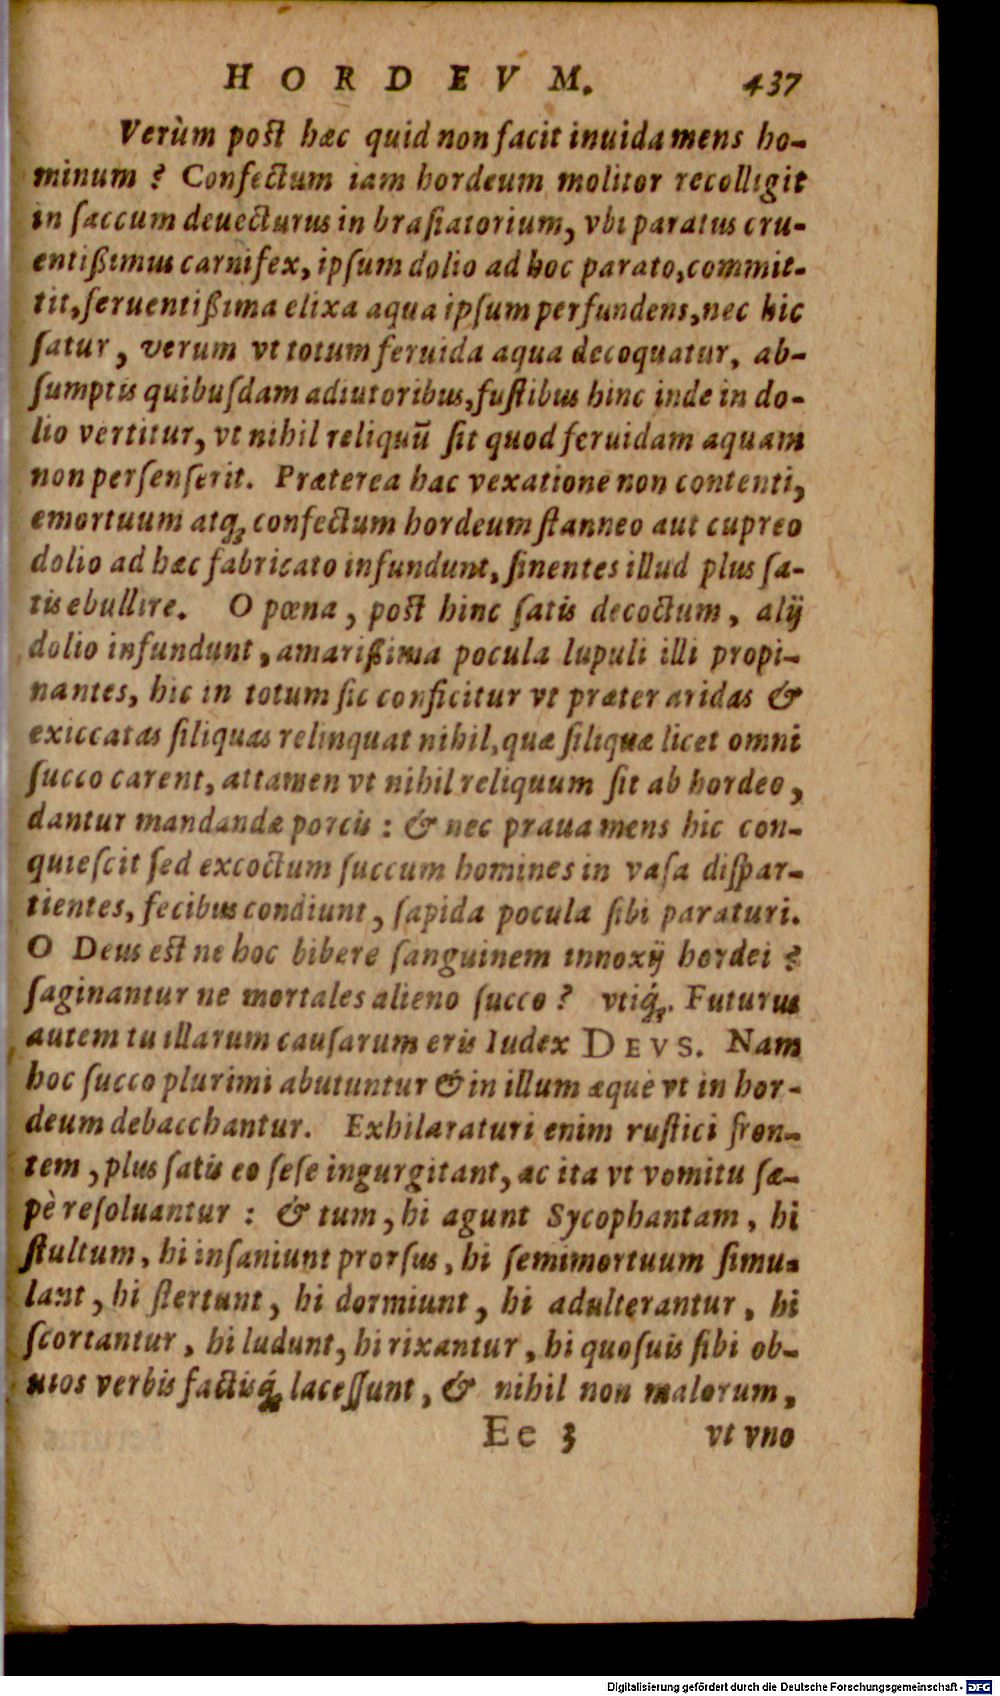 HORDEVM. 437
Verùm post hæc quid non facit inuida mens ho-
minum ? Confectum iam hordeum molitor recolligit
in saccum deuecturus in brasiatorium, vbi paratus cru-
entißimus carnifex, ipsum dolio ad hoc parato, commit-
tit, feruentißima elixa aqua ipsum perfundens, nec hic
satur, verum vt totum feruida aqua decoquatur, ab-
sumptis quibusdam adiutoribus, fustibus hinc inde in do-
lio vertitur, vt nihil reliquũ sit quod feruidam aquam
non persenserit. Præterea hac vexatione non contenti,
emortuum atq; confectum hordeum stanneo aut cupreo
dolio ad hæc fabricato infundunt, sinentes illud plus sa-
tis ebullire. O pœna, post hinc satis decoctum, alij
dolio infundunt, amarißima pocula lupuli illi propi-
nantes, hic in totum sic conficitur vt præter aridas &
exiccatas siliquas relinquat nihil, quæ siliquæ licet omni
succo carent, attamen vt nihil reliquum sit ab hordeo,
dantur mandandæ porcis : & nec praua mens hic con-
quiescit sed excoctum succum homines in vasa dispar-
tientes, fecibus condiunt, sapida pocula sibi paraturi.
O Deus est ne hoc bibere sanguinem innoxij hordei ?
saginantur ne mortales alieno succo ? vtiq́;. Futurus
autem tu illarum causarum eris Iudex DEVS. Nam
hoc succo plurimi abutuntur & in illum æquè vt in hor-
deum debacchantur. Exhilaraturi enim rustici fron-
tem, plus satis eo sese ingurgitant, ac ita vt vomitu sæ-
pè resoluantur : & tum, hi agunt Sycophantam, hi
stultum, hi insaniunt prorsus, hi semimortuum simu-
lant, hi stertunt, hi dormiunt, hi adulterantur, hi
scortantur, hi ludunt, hi rixantur, hi quosuis sibi ob-
uios verbis factisq́; lacessunt, & nihil non malorum,
Ee 3 vt vno
Digitalisierung gefördert durch die Deutsche Forschungsgemeinschaft - DFG